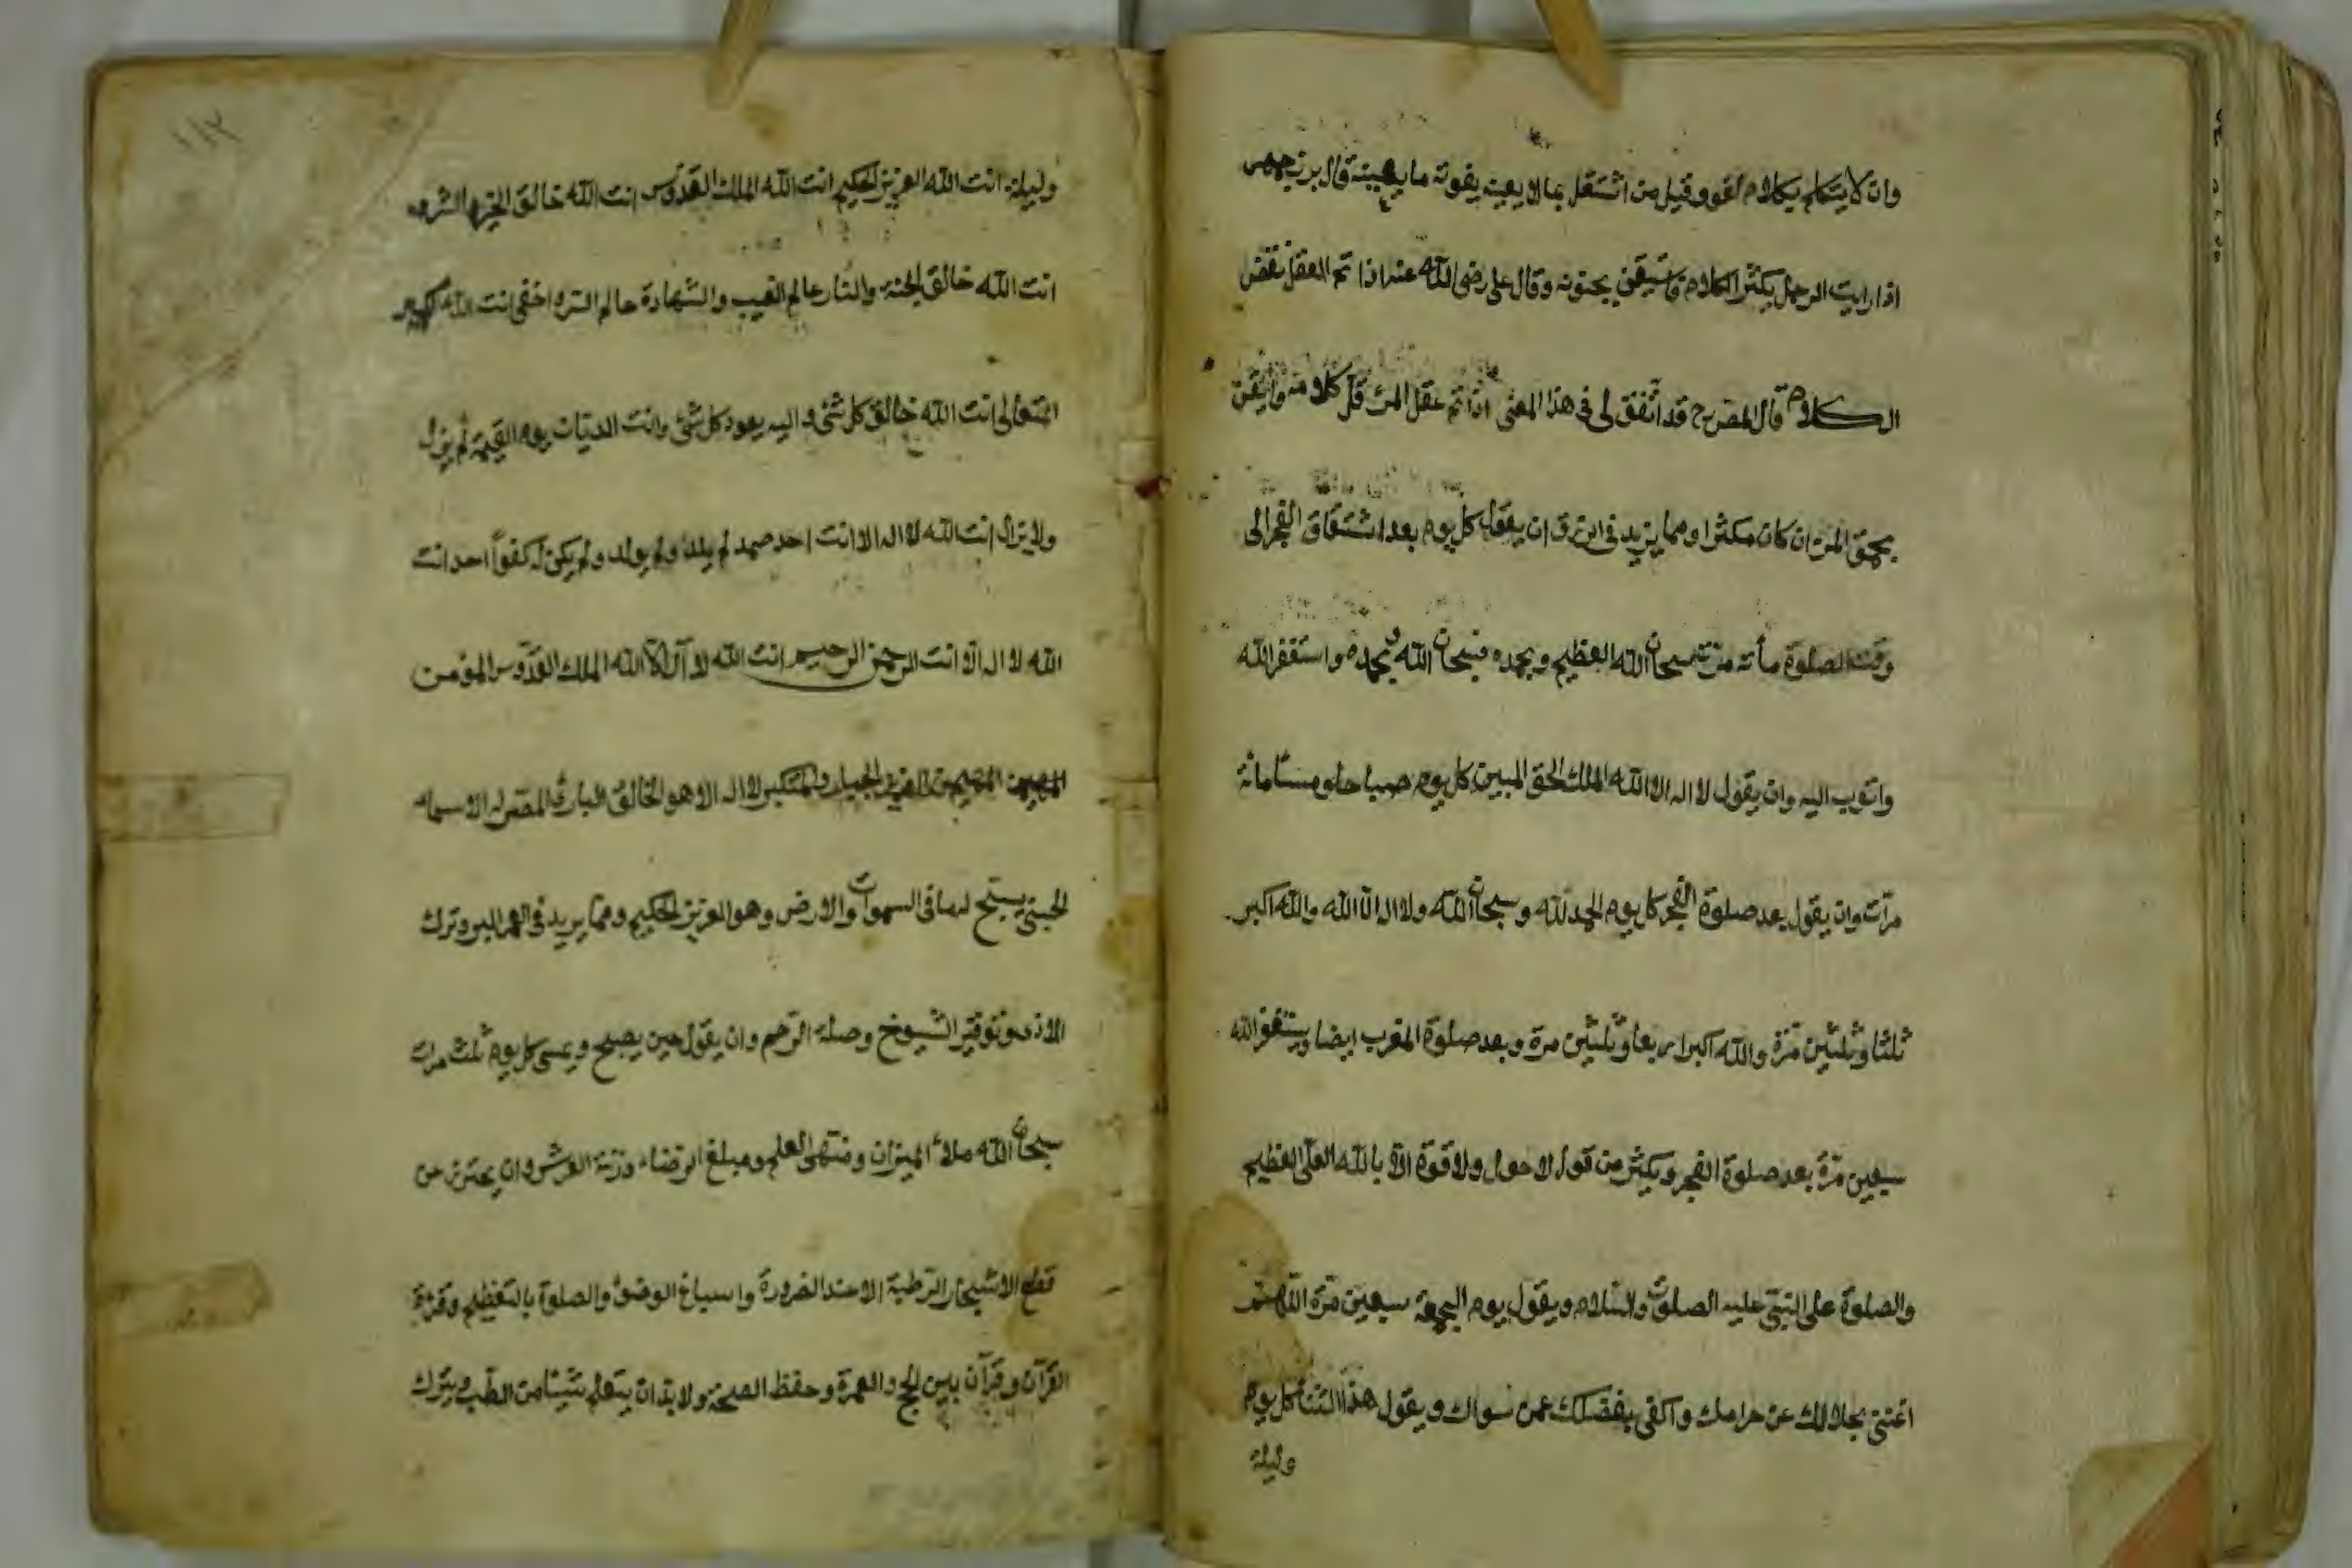 وان لا يتكلم بكلام لغو وقيل من اشتغل بما لا يعينه يفوته ما يعينه قال بزرجمهر
اذا رايت الرجل يكثر الكلام فاستيقن بجنونه وقال على رضى الله عنه اذا تم العقل نقص
الكلام قال المصرح قد اتفق لى فى هذا المعنى اذا تم عقل المرء قل كلامه وايقن
بحمق المرء ان كان مكثرا ومما يزيد فى الرزق ان يقول كل يوم بعد انشقاق الفجر الى
وقت الصلوة مأته مرة سبحان الله العظيم وبحمده سبحان الله وبحمده واستغفر الله
واتوب اليه وان يقول لا اله الا الله الملك الحق المبين كل يوم صباحا ومساء مائة
مرات وان يقول بعد صلوة الفجر كل يوم الحمد لله وسبحان الله ولا اله الا الله والله اكبر
ثلثا وثلثين مرة والله اكبر اربعا وثلثين مرة وبعد صلوة المغرب ايضا ويستغفر الله
سبعين مرة بعد صلوة الفجر ويكثر من قول لا حول ولا قوة الا بالله العلى العظيم
والصلوة على النبى عليه الصلوة والسلام ويقول يوم الجمعة سبعين مرة اللهم
اغننى بحلالك عن حرامك واكفنى بفضلك عمن سواك ويقول هذا الثناء كل يوم
وليلة
١١٢
وليلة انت الله العزيز الحكيم انت الله الملك القدوس انت الله خالق الخير والشر
انت الله خالق الجنة والنار عالم الغيب والشهادة عالم السر واخفى انت الله الكبير
المتعالى انت الله خالق كل شئ واليه يعود كل شئ وانت الديان يوم القيمة لم يزل
ولا يزال انت الله لا اله الا انت احد صمد لم يلد ولم يولد ولم يكن له كفوا احد انت
الله لا اله الا انت الرحمن الرحيم انت الله لا اله الا الله الملك القدوس المؤمن
المهيمن العزيز الجبار والمتكبر لا اله الا هو الخالق البارئ المصور له الاسماء
الحسنى يسبح له ما فى السموات والارض وهو العزيز الحكيم ومما يزيد فى العمر البر وترك
الاذى وتوقير الشيوخ وصلة الرحم وان يقول حين يصبح ويمسى كل يوم ثلث مرات
سبحان الله ملأ الميزان ومنتهى العلم ومبلغ الرضاء وزنة العرش وان يحترز عن
قطع الاشجار الرطبة الا عند الضرورة واسباغ الوضوء والصلوة بالتعظيم وقراءة
القرآن وقرآن بين الحج والعمرة وحفظ الصحة ولا بد ان يتعلم شيئا من الطب ويترك